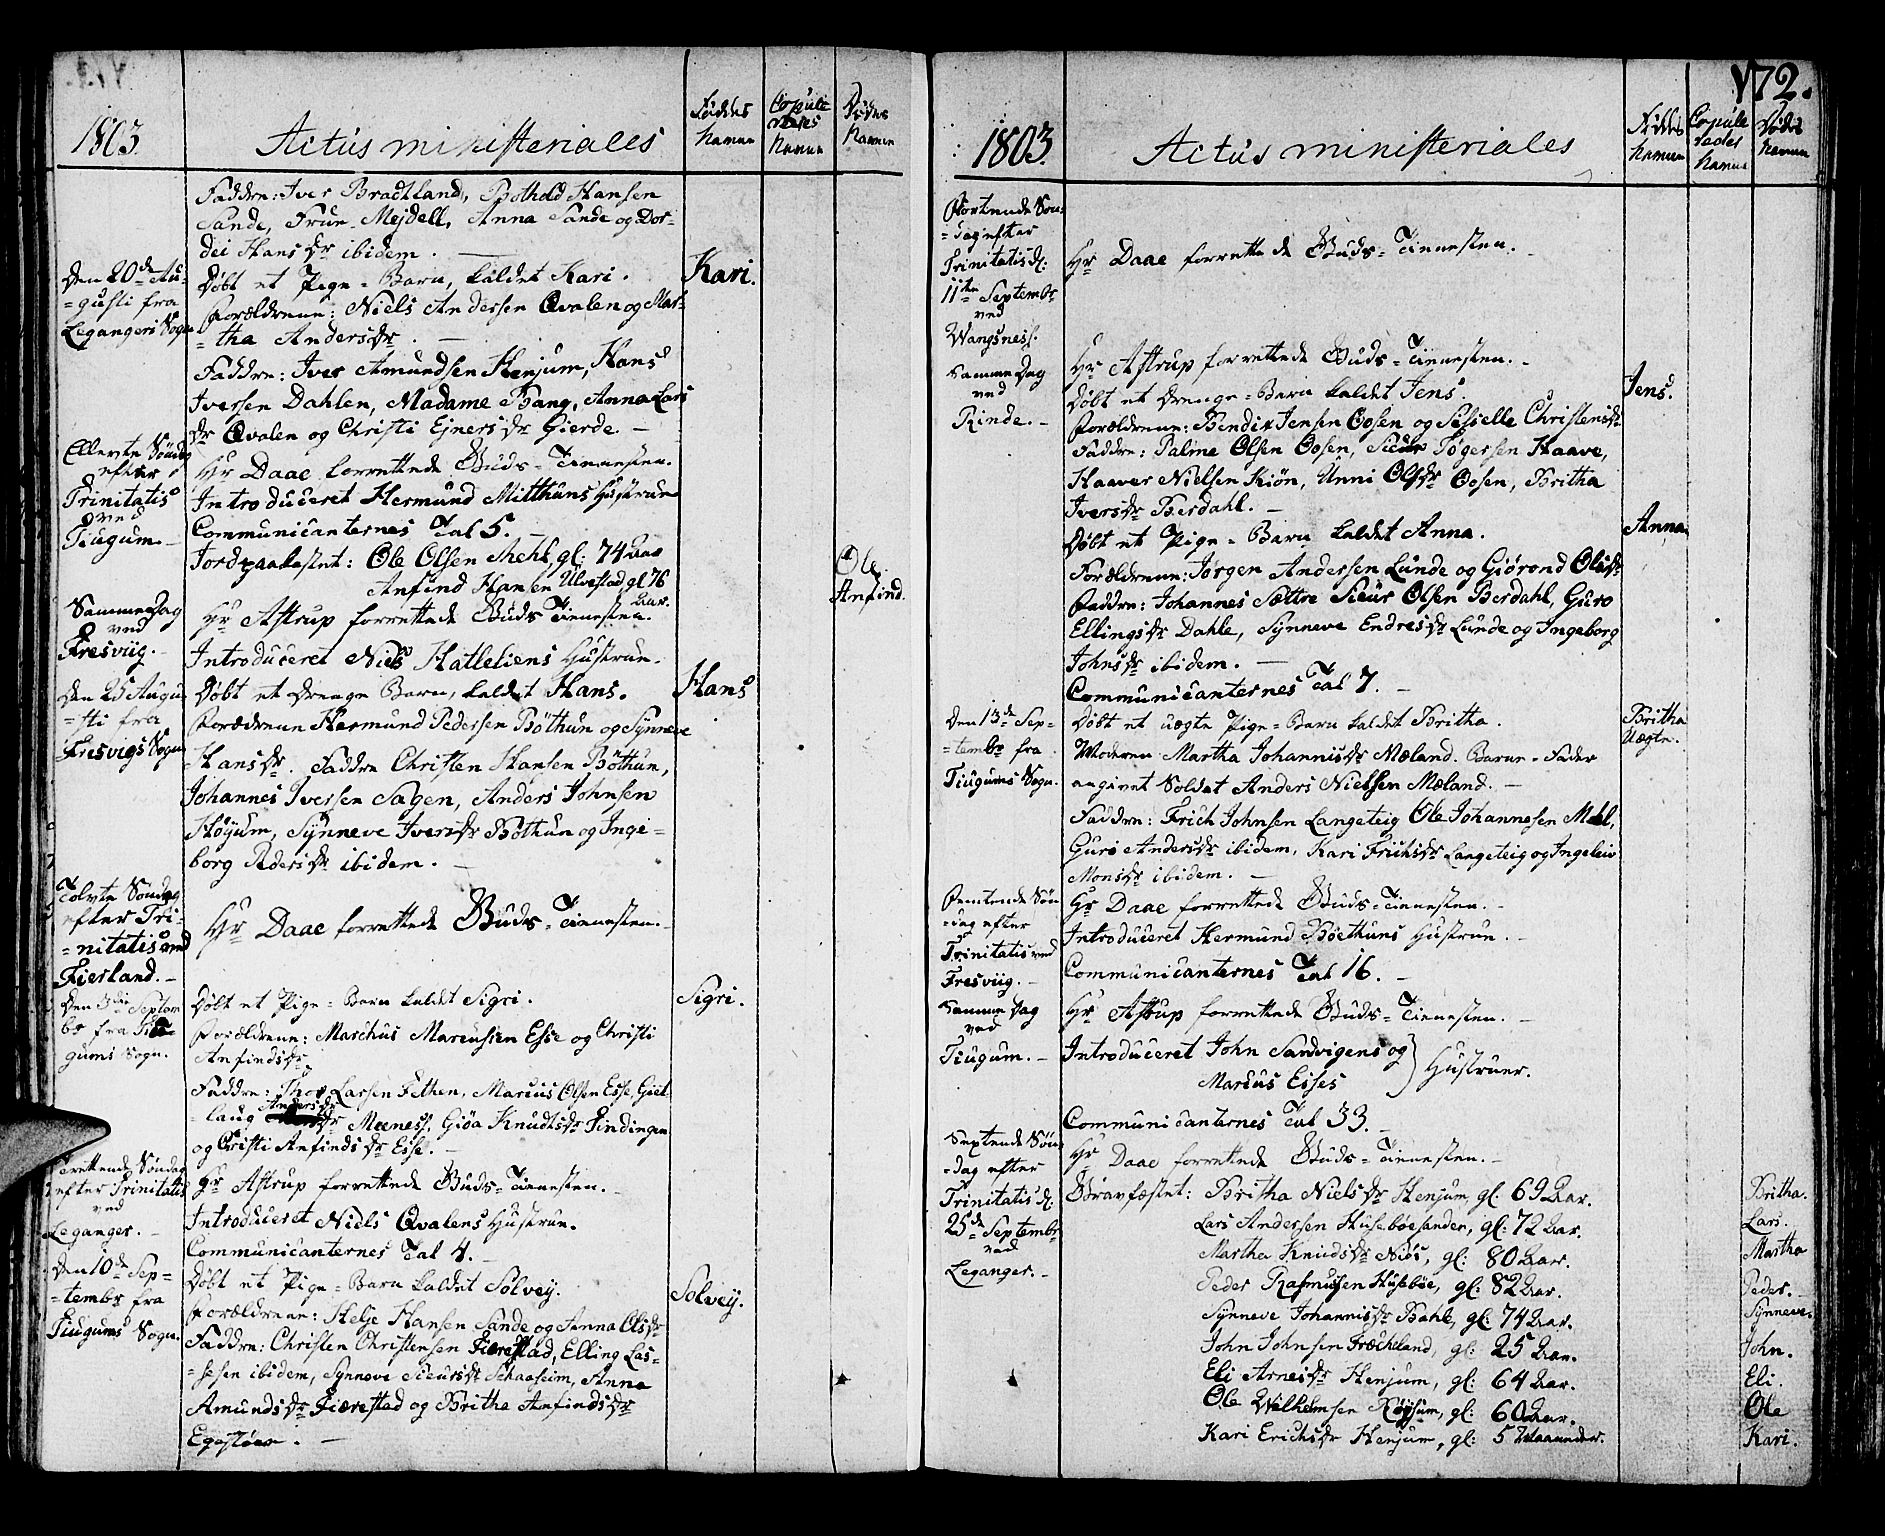 1803.
Actus ministeriales
Föddes Namen
Copuleredes Namen
Dødes Namen
Faddre: Iver Bradtland, Bothold Hansen
Sande, Frue Mejdell, Anna Sande og Dor-
dei Hansdr ibidem.
Den 20de Au-
=gusti fra
Legangers Sogn
Døbt et Pige-Barn, kaldet Kari.
Kari.
Forældrene: Niels Andersen Qvalen og Mar-
=tha Andersdr.
Faddre: Iver Amundsen Henjum, Hans
Iversen Dahlen, Madame Bang, Anna Lars
dr Qvalen og Christi Ejnersdr Gierde.
Ellevte Søndag
efter
Trinitatis
ved
Tiugum.
Hr Daae forrettede Guds-Tienesten.
Introduceret Hermund Mitthuns Hustrue
Communicanternes Tal 5.
Jordpaakastet: Ole Olsen, gl: 74 Aar
Ole.
Anfind Hansen Ulvestad gl 76
Aar.
Anfind.
Samme Dag
ved
Fresviig.
Hr Astrup forrettede Guds Tienesten.
Introduceret Niels Hatleliens Hustrue.
Den 25 Augu
=sti fra
Fresvigs Sogn
Døbt et Drenge Barn, kaldet Hans.
Hans
Forældrene Hermund Pedersen Böthun og Synneve
Hansdr. Faddre Christen Hansen Böthun,
Johannes Iversen Sagen, Anders Johnsen
Høyum, Synneve Iversdr Böthun og Inge-
borg Pedersdr ibidem.
Tolvte Søndag
efter Tri-
=nitatis ved
Fierland.
Hr Daae forrettede Guds-Tienesten.
Den 3die Septem
br fra Tiu-
gums Sogn.
Døbt et Pige-Barn kaldet Sigri.
Sigri.
Forældrene: Marchus Marcussen Esse og Christi
Anfindsdr
Faddre: Thor Larsen Fethen, Marcus Olsen Esse, Giet
=laug Andersdr Meenes, Giøa Knudtsdr Findingen
og Christi Anfindsdr Esse.
Trettende Søndag
efter Trinitatis
ved
Leganger.
Hr Astrup forrettede Guds-Tienesten.
Introduceret Niels Qvalens Hustrue.
Communicanternes Tal 4.
Den 10de Sep-
=tembr fra
Tiugums Sogn.
Døbt et Pige-Barn kaldet Solvey.
Solvey.
Forældrene: Helje Hansen Sande og Anna Olsdr
Faddre: Christen Christensen Fiærestad, Elling Las-
=sesen ibidem, Synneve Sieursdr, Anna
Amundsdr Fiærestad og Britha Anfindsdr
172.
1803.
Actus ministeriales
Föddes Namen
Copuleredes Namen
Dødes Namen
Fiortende Søn-
=dag efter
Trinitatis d:
11te Septembr
ved
Wangsness.
Hr Daae forrettede Guds-Tienesten.
Samme Dag
ved
Rinde.
Hr Astrup forrettede Guds-Tienesten.
Døbt et Drenge-Barn kaldet Jens.
Jens.
Forældrene: Bendix Jensen Oosen og Sissielle Christensdr
Faddre: Palme Olsen Oosen, Sieur Tøgersen Haave,
Haaver Nielsen Kiön, Unni Olsdr Oosen, Britha
Iversdr Berdahl.
Døbt et Pige-Barn kaldet Anna.
Anna
Forældrene: Jørgen Andersen Lunde og Giørond Olusdr
Faddre: Johannes Sættre Sieur Olsen Berdahl, Guro
Ellingsdr Dahle, Synneve Endresdr Lunde og Ingeborg
Johnsdr ibidem.
Communicanternes Tal 7.
Den 13de Sep-
=tembr fra
Tiugums Sogn.
Døbt et uægte Pige-Barn kaldet Britha.
Britha
Uægte.
Moderen Martha Johannisdr Mæland. Barne-Fader
angivet Soldat Anders Nielsen Mæland.
Faddre: Frich Johnsen Langeteig Ole Johannesen Mæl,
Guro Andersdr ibidem, Kari Frichsdr Langeteig og Ingeleiv
Monsdr ibidem.
Femtende Søn
=dag efter
Trinitatis ved
Fresviig.
Hr Daae forrettede Guds-Tienesten.
Introduceret Hermund Böethuns Hustrue.
Communicanternes Tal 16.
Samme Dag
ved
Tiugum.
Hr Astrup forrettede Guds-Tienesten.
Introduceret John Sandvigens og
Marcus Esses
Hustruer.
Communicanternes Tal 33.
Sextende Søn
=dag efter
Trinitatis d:
25de Septembr
ved
Leganger.
Hr Daae forrettede Guds-Tienesten.
Gravfæstet: Britha Nielsdr Henjum, gl: 69 Aar.
Britha.
Lars Andersen Husebøesanden, gl: 72 Aar.
Lars.
Martha Knudsdr Niøs, gl: 80 Aar.
Martha
Peder Rasmussen Husebøe, gl: 82 Aar.
Peder.
Synneve Johannisdr Bahl, gl: 74 Aar.
Synneve.
John Johnsen Frœcheland, gl: 25 Aar.
John.
Eli Arnesdr Henjum, gl: 64 Aar.
Eli.
Ole Wilhelmsen Röysum, gl: 60 Aar.
Ole
Kari Erichsdr Henjum, gl: 5 Maaneder.
Kari.